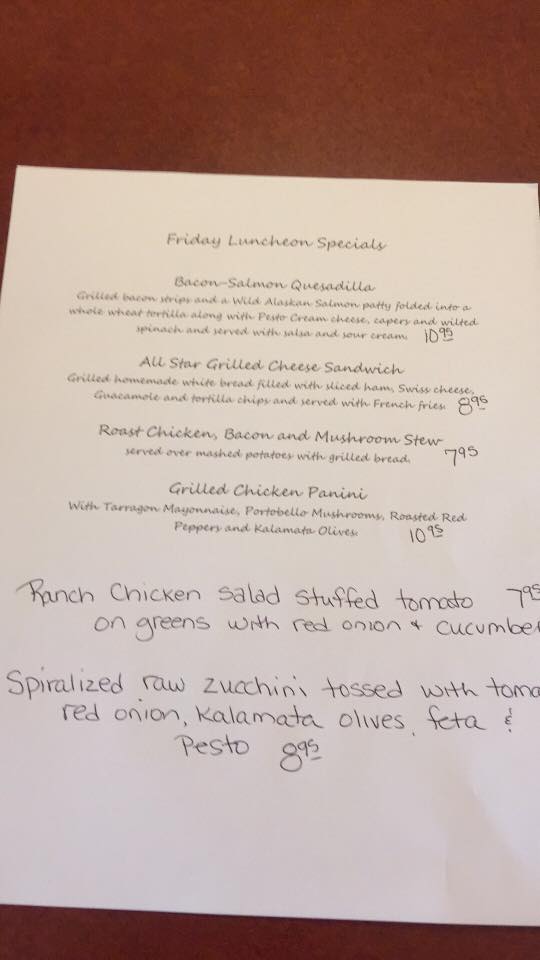 Friday Luncheon Specials
Bacon-Salmon Quesadilla
Grilled bacon strips and a Wild Alaskan Salmon patty folded into a
whole wheat tortilla along with Pesto Cream cheese, capers and wilted
spinach and served with salsa and sour cream. 10.95
All Star Grilled Cheese Sandwich
Grilled homemade white bread filled with sliced ham, Swiss cheese,
Guacamole and tortilla chips and served with French fries. 8.95
Roast Chicken, Bacon and Mushroom Stew
served over mashed potatoes with grilled bread. 795
Grilled Chicken Panini
With Tarragon Mayonnaise, Portobello Mushrooms, Roasted Red
Peppers and Kalamata Olives. 10 95
Ranch Chicken salad stuffed tomato 795
on greens with red onion + cucumbe
Spiralized raw zucchini tossed with toma
red onion, Kalamata olives, feta &
Pesto 8 95